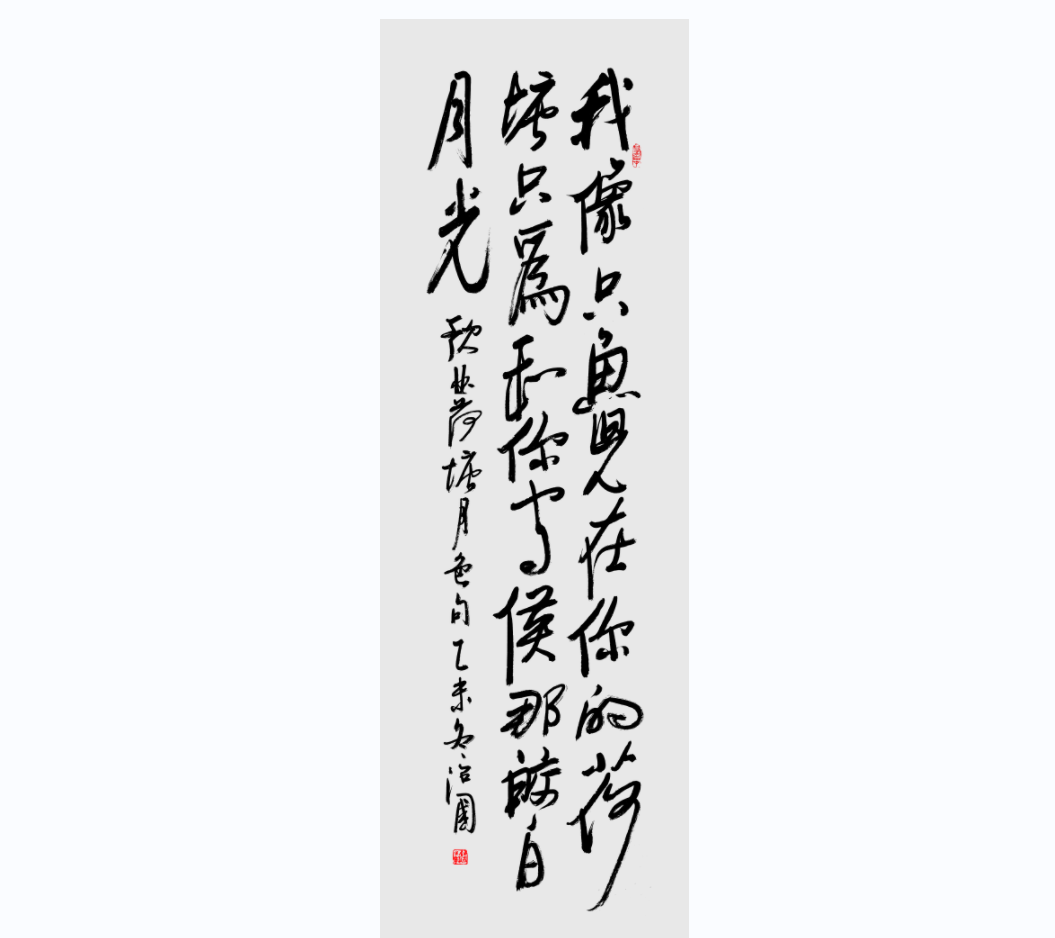 我像只魚兒在你的荷
塘只爲和你守候那皎白
月光
歌曲荷塘月色句乙未冬治國